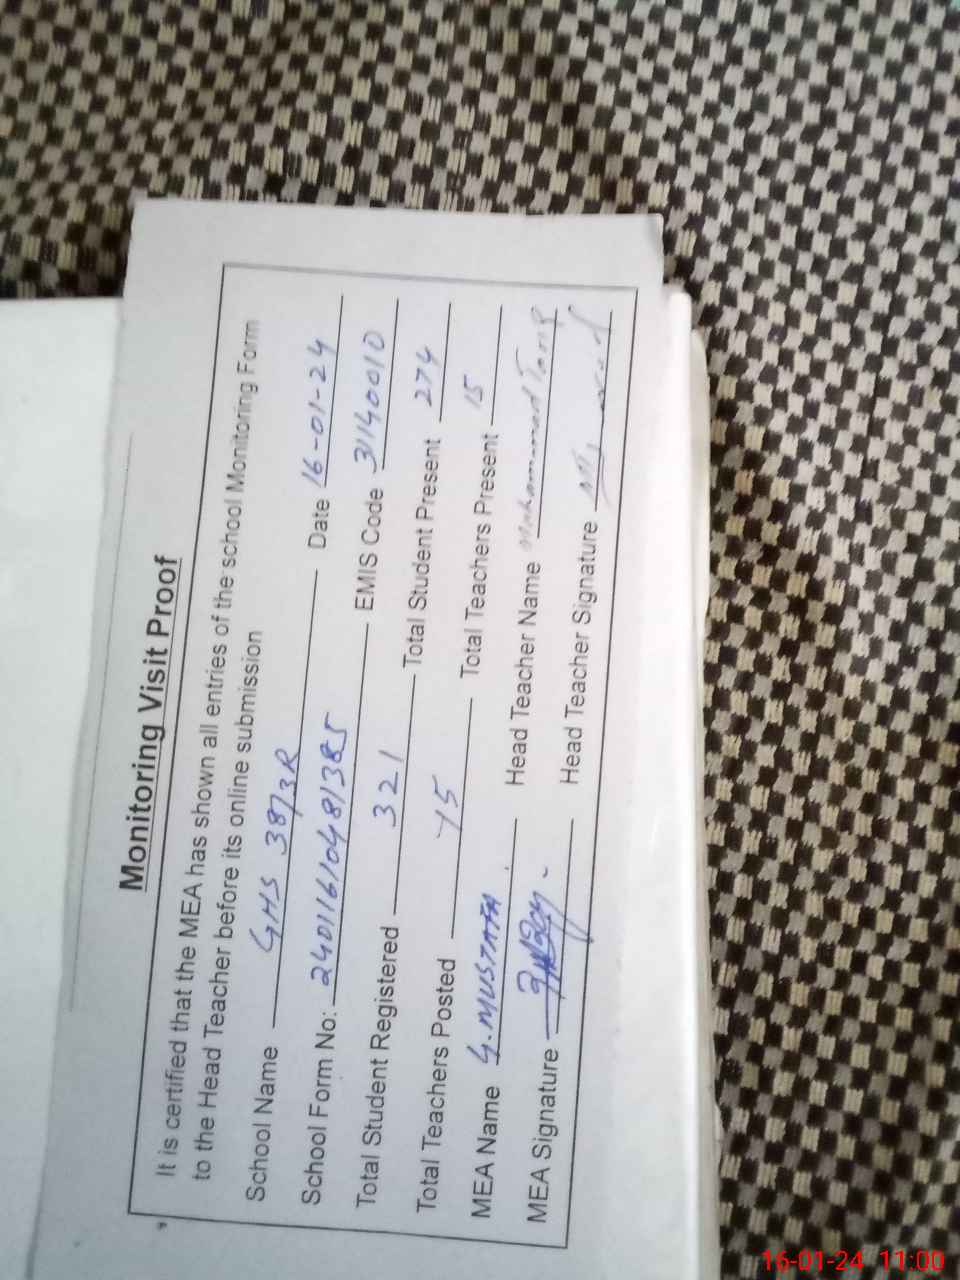 Monitoring Visit Proof
It is certified that the MEA has shown all entries of the school Monitoring Form
to the Head Teacher before its online submission
School Name GHS 38/3R Date 16-01-24
School Form No: 2401161048/385 EMIS Code 31140010
Total Student Registered 321 Total Student Present 274
Total Teachers Posted 15 Total Teachers Present 15
MEA Name G. MUSTAFA Head Teacher Name Muhammad Tariq
MEA Signature Head Teacher Signature
16-01-24 11:00